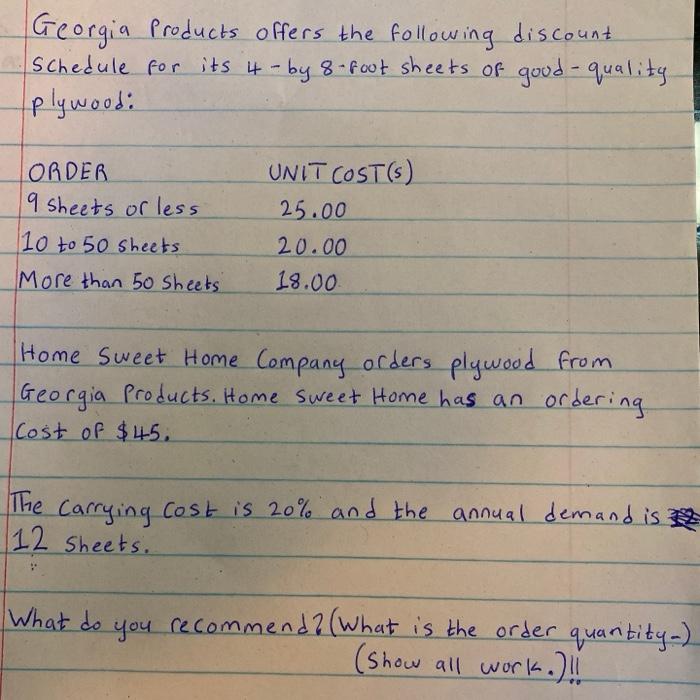 Georgia Products offers the following discount
Schedule for its 4-by 8-foot sheets of good-quality
plywood:
ORDER UNIT COST(s)
9 sheets or less 25.00
10 to 50 sheets 20.00
More than 50 Sheets 18.00
Home Sweet Home Company orders plywood from
Georgia Products. Home Sweet Home has an ordering
Cost of $45.
The Carrying Cost is 20% and the annual demand is
12 Sheets.
What do you recommend? (What is the order quantity-)
(Show all work.)!!